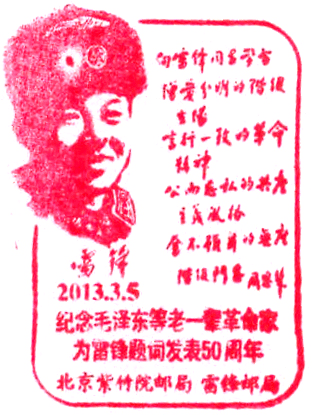 向雷锋同志学习
憎爱分明的阶级
立场
言行一致的革命
精神
公而忘私的共产
主义风格
奋不顾身的无产
阶级斗志 周恩来
雷锋
2013.3.5
纪念毛泽东等老一辈革命家
为雷锋题词发表50周年
北京紫竹院邮局 雷锋邮局